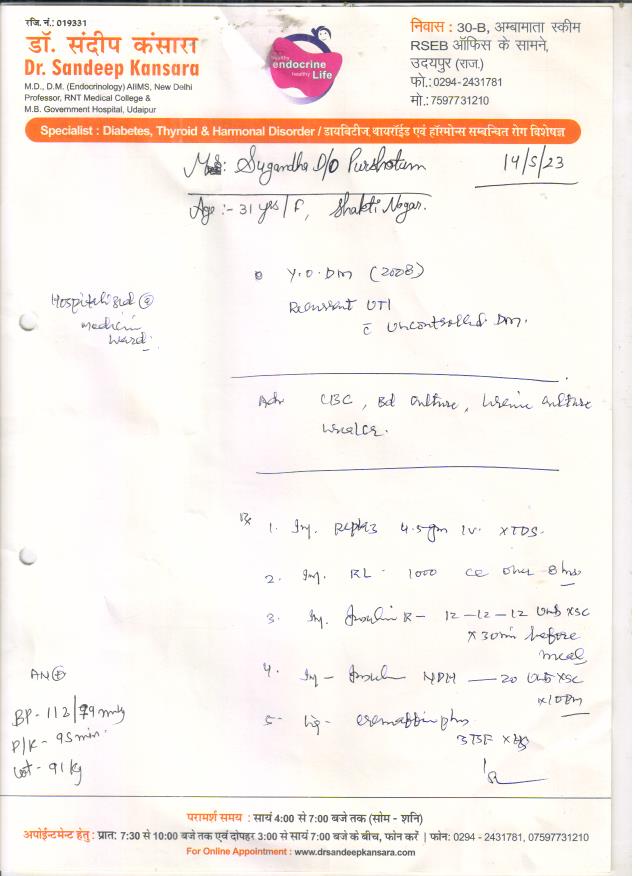 रजि. नं.: 019331
डॉ. संदीप कंसारा
Dr. Sandeep Kansara
M.D., D.M. (Endocrinology) AIIMS, New Delhi
Professor, RNT Medical College &
M.B. Government Hospital, Udaipur
healthy
endocrine
healthy Life
निवास : 30-B, अम्बामाता स्कीम
RSEB ऑफिस के सामने,
उदयपुर (राज.)
फो.:0294-2431781
मो.: 7597731210
Specialist : Diabetes, Thyroid & Harmonal Disorder / डायबिटीज, थायरॉईड एवं हॉरमोन्स सम्बन्धित रोग विशेषज्ञ
Sugandha D/O Purshotam
14/5/23
Age :- 31 yrs/F, Shakti Nagar.
Y.O.DM (2008)
Recurrent UTI
c̄ Uncontrolled DM.
Hospitalised @
medicine
ward.
Adv CBC, Bd culture, Urine culture
Rx
1. Inj. 4.5gm IV. X TDS.
2. Inj. RL - 1000 CC over 8 hrs
3. Inj. Insulin R - 12-12-12 Units X SC
X 30min before
meal
4. Inj - Insulin NPH — 20 Units X SC
X 10pm
5- Liq - cremaffin plus
3TSF X HS
BP - 112/79 mmHg
P/R - 95 min.
Wt - 91 kg
परामर्श समय : सायं 4:00 से 7:00 बजे तक (सोम - शनि)
अपोईन्टमेन्ट हेतु : प्रात: 7:30 से 10:00 बजे तक एवं दोपहर 3:00 से सायं 7:00 बजे के बीच, फोन करें | फोन: 0294 - 2431781, 07597731210
For Online Appointment : www.drsandeepkansara.com